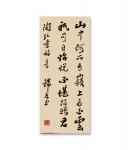 山中何所有嶺上多白雲
只可自怡悦不堪持贈君
陶弘景詩意